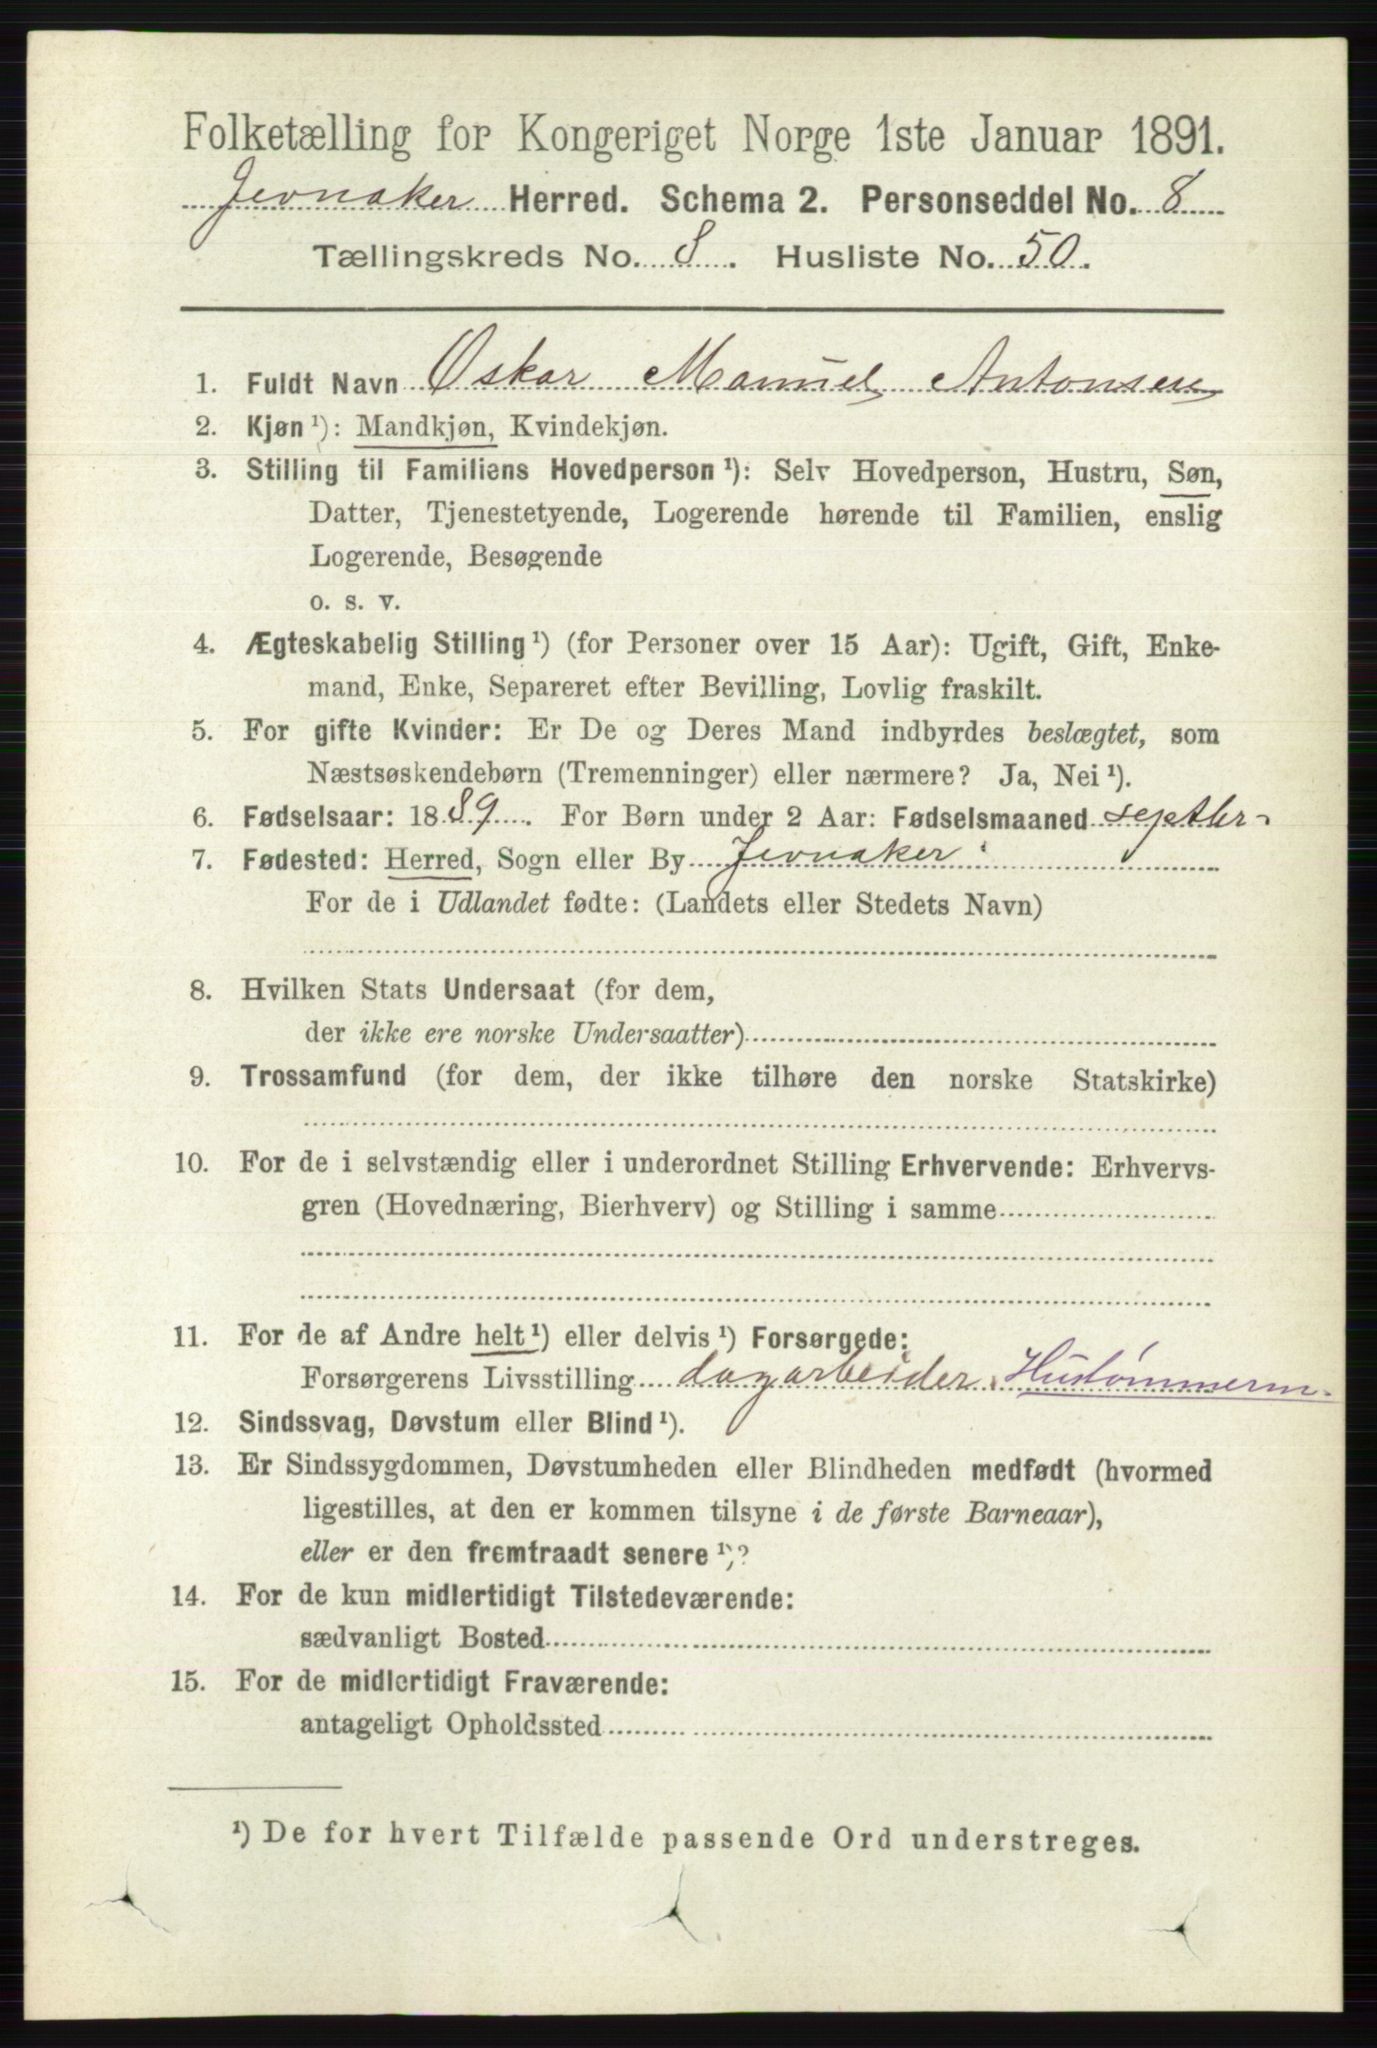 Folketælling for Kongeriget Norge 1ste Januar 1891.
Jevnaker Herred. Schema 2. Personseddel No. 8
Tællingskreds No. 8. Husliste No. 50.
1. Fuldt Navn Oskar Manuel Antonsen
2. Kjøn ¹): Mandkjøn, Kvindekjøn.
3. Stilling til Familiens Hovedperson ¹): Selv Hovedperson, Hustru, Søn,
Datter, Tjenestetyende, Logerende hørende til Familien, enslig
Logerende, Besøgende
o. s. v.
4. Ægteskabelig Stilling ¹) (for Personer over 15 Aar): Ugift, Gift, Enke-
mand, Enke, Separeret efter Bevilling, Lovlig fraskilt.
5. For gifte Kvinder: Er De og Deres Mand indbyrdes beslægtet, som
Næstsøskendebørn (Tremenninger) eller nærmere? Ja, Nei ¹).
6. Fødselsaar: 1889. For Børn under 2 Aar: Fødselsmaaned septbr-
7. Fødested: Herred, Sogn eller By Jevnaker
For de i Udlandet fødte: (Landets eller Stedets Navn)
8. Hvilken Stats Undersaat (for dem,
der ikke ere norske Undersaatter)
9. Trossamfund (for dem, der ikke tilhøre den norske Statskirke)
10. For de i selvstændig eller i underordnet Stilling Erhvervende: Erhvervs-
gren (Hovednæring, Bierhverv) og Stilling i samme
11. For de af Andre helt ¹) eller delvis ¹) Forsørgede:
Forsørgerens Livsstilling dagarbeider, Hustømmerm.
12. Sindssvag, Døvstum eller Blind ¹).
13. Er Sindssygdommen, Døvstumheden eller Blindheden medfødt (hvormed
ligestilles, at den er kommen tilsyne i de første Barneaar),
eller er den fremtraadt senere ¹)?
14. For de kun midlertidigt Tilstedeværende:
sædvanligt Bosted
15. For de midlertidigt Fraværende:
antageligt Opholdssted
¹) De for hvert Tilfælde passende Ord understreges.